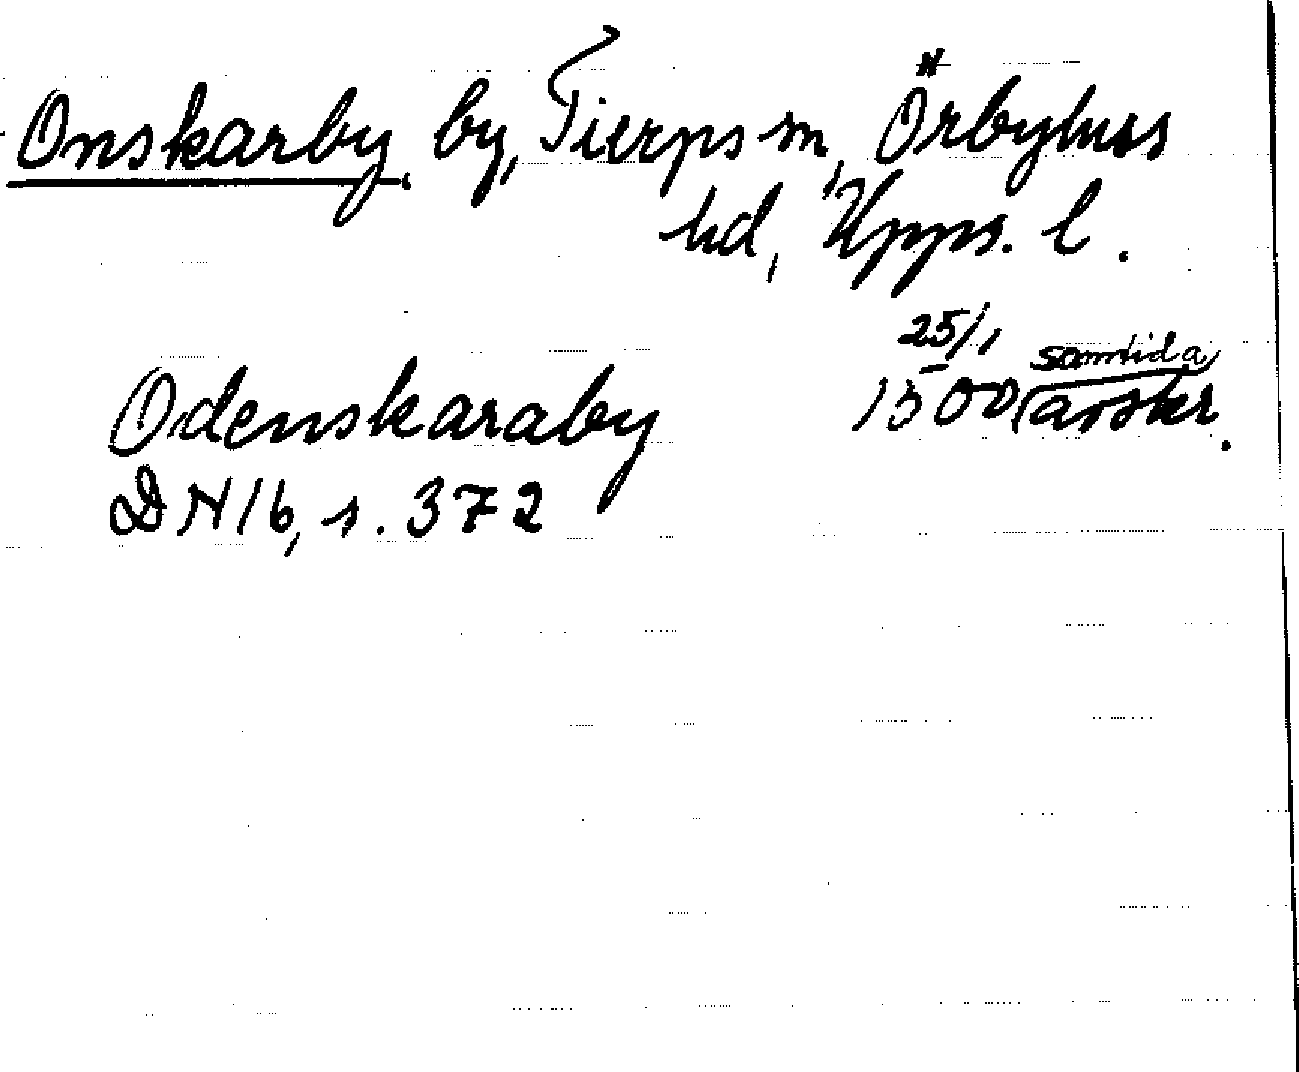 Onskarby, by, Tierps sn, Örbyhus
hd, Upps. l.
Odenskaraby 25/1 1500 (samtida avskr.
DN 16, s. 372